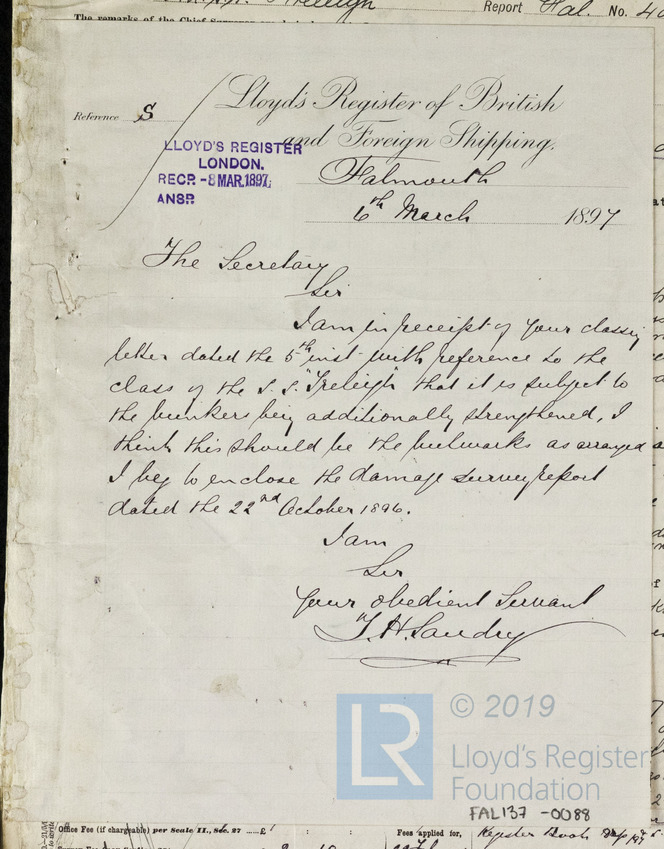 Treleigh Report Fal. No. 40
The remarks of the Chief Surveyor
Lloyd's Register of British
and Foreign Shipping.
Reference S
LLOYD'S REGISTER
LONDON.
RECD. -8 MAR.1897
ANSR
Falmouth
6th March 1897
The Secretary
Sir
I am in receipt of your classing
letter dated the 5th inst with reference to the
class of the S.S. "Treleigh" that it is subject to
the bunkers being additionally strengthened, I
think this should be the bulwarks as arranged
I beg to enclose the damage survey report
dated the 22nd October 1896.
I am
Sir
Your obedient Servant
T. H. Sandry
© 2019
LR
Lloyd's Register
Foundation
FAL137 -0088
Office Fee (if chargeable) per Scale II., Sec. 27 ......£
Fees applied for,
Register Book